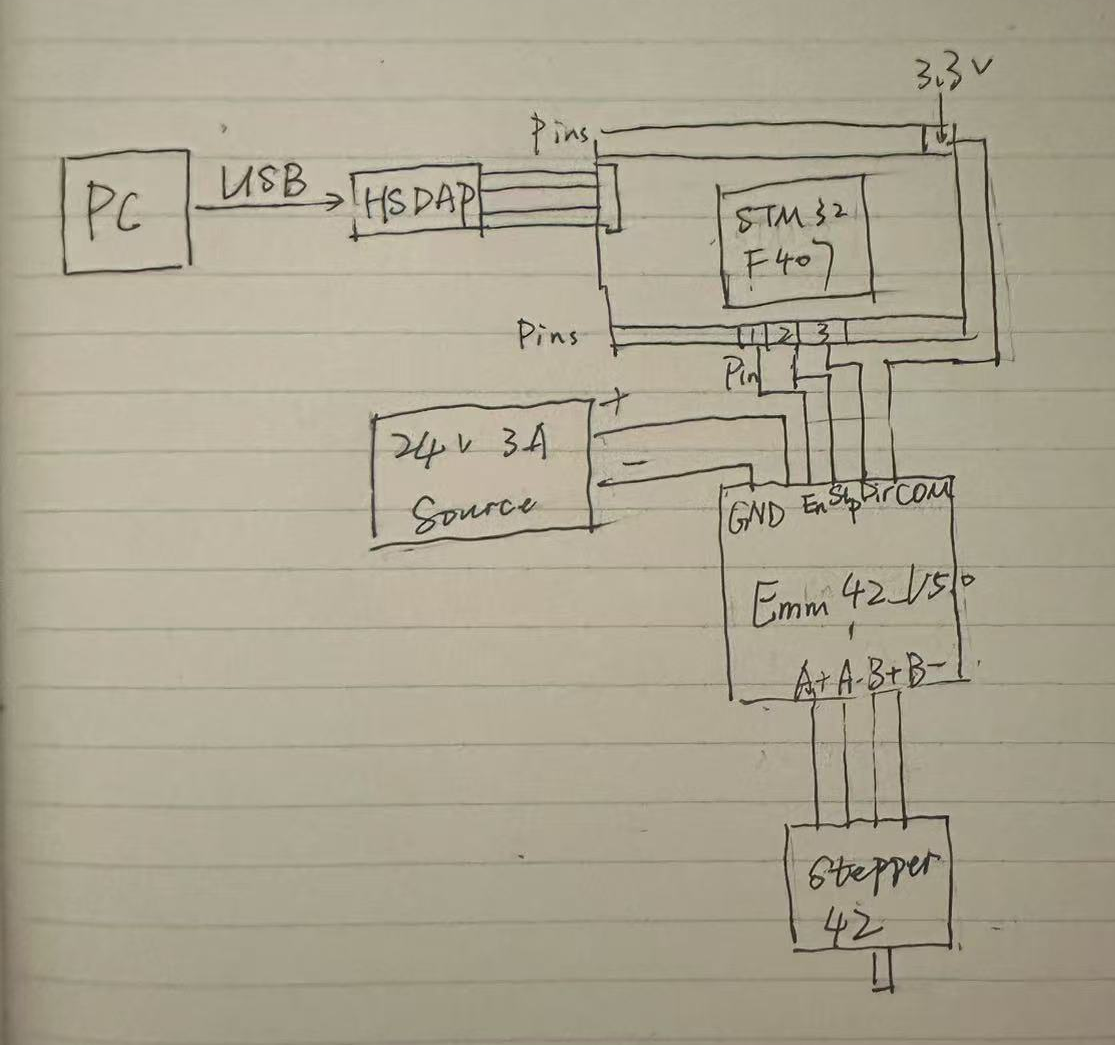 3.3V
Pins
PC
USB
HSDAP
STM32
F407
Pins
1 2 3
Pin
+
24V 3A
-
Source
GND En Stp Dir COM
Emm 42_V5.0
A+ A- B+ B-
Stepper
42